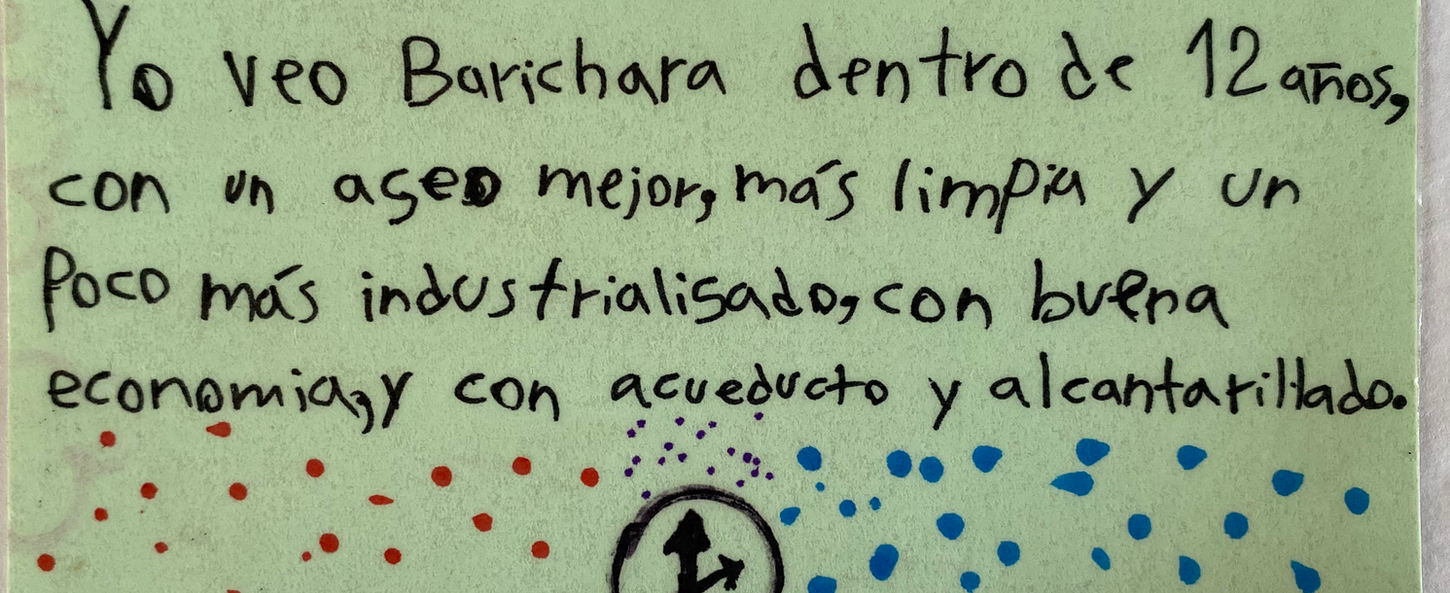 Yo veo Barichara dentro de 12 años,
con un aseo mejor, más limpia y un
poco más industrialisado, con buena
economia, y con acueducto y alcantarillado.